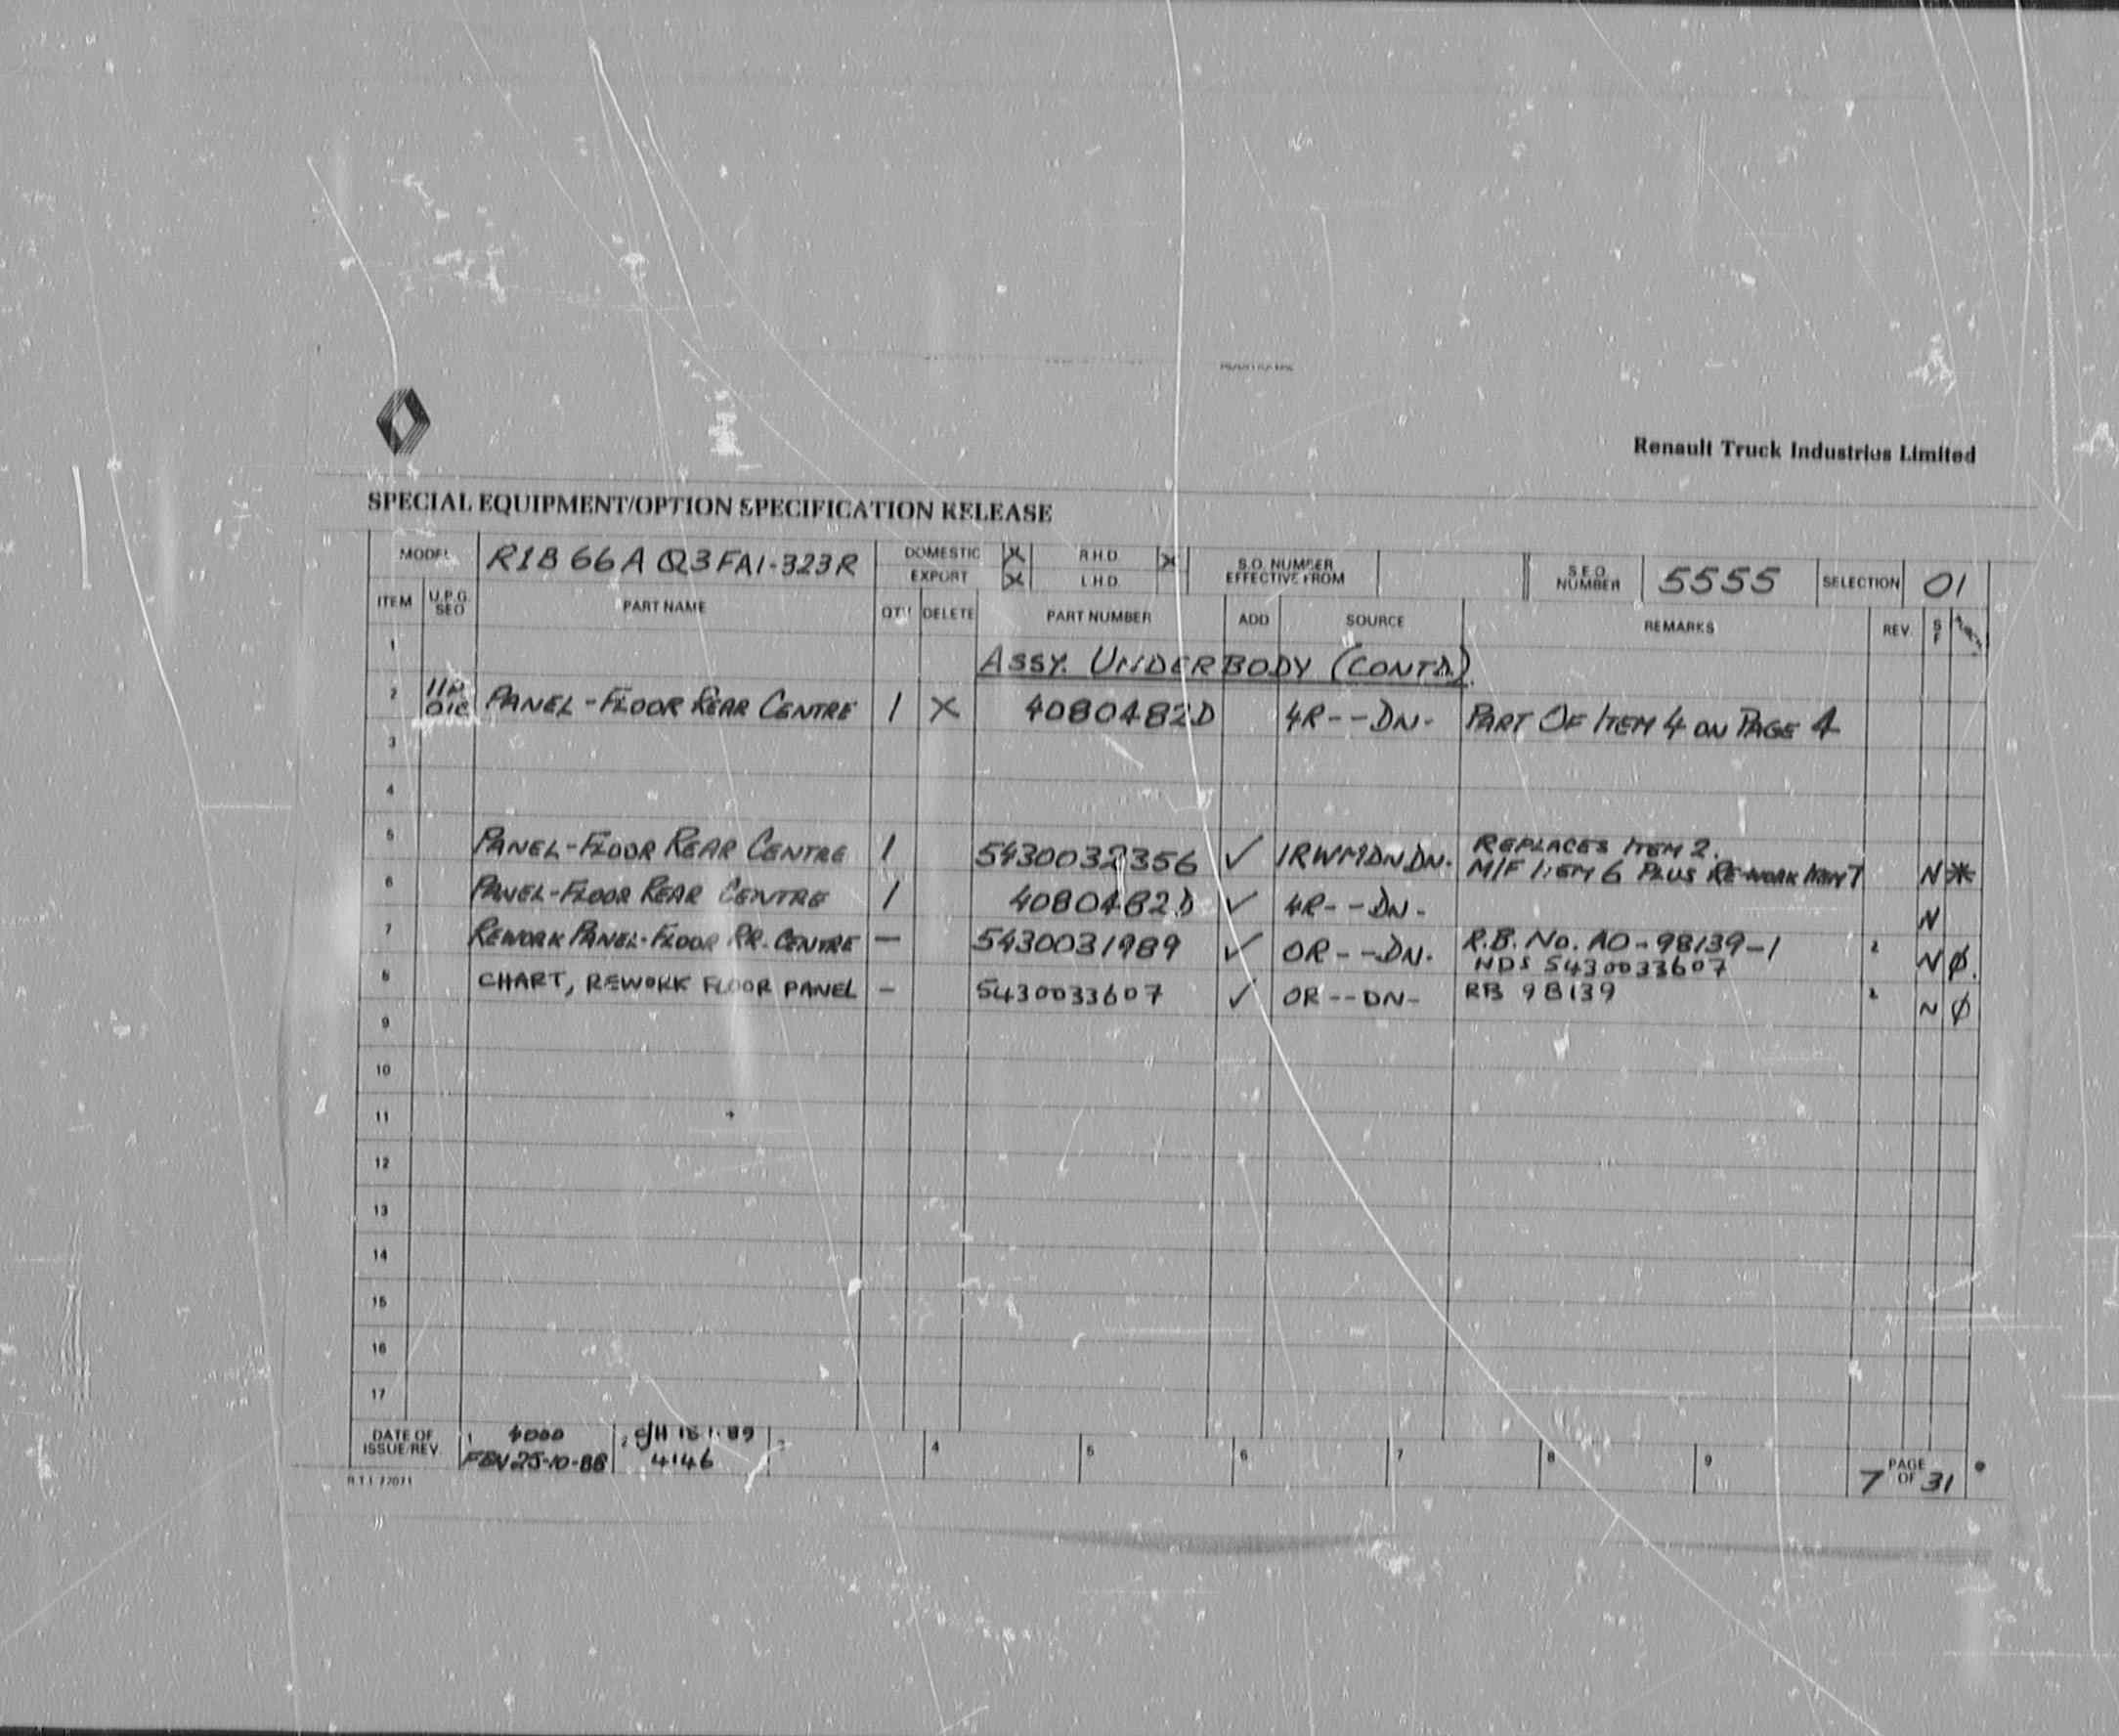 Renault Truck Industries Limited
SPECIAL EQUIPMENT/OPTION SPECIFICATION RELEASE
MODEL R1B66AQ3FA1-323R DOMESTIC X R.H.D. X S.O. NUMBER EFFECTIVE FROM S.E.O. NUMBER 5555 SELECTION 01
EXPORT X L.H.D.
ITEM U.P.G. SEO PART NAME QTY DELETE PART NUMBER ADD SOURCE REMARKS REV. S F
1 ASSY. UNDERBODY (CONTD.)
2 PANEL-FLOOR REAR CENTRE 1 X 4080482D 4R--DN- PART OF ITEM 4 ON PAGE 4
3
4
5 PANEL-FLOOR REAR CENTRE 1 5430032356 ✓ 1RWMDNDN. REPLACES ITEM 2.
M/F ITEM 6 PLUS RE-WORK N *
6 PANEL-FLOOR REAR CENTRE 1 4080482D ✓ 4R--DN- N
7 REWORK PANEL-FLOOR RR. CENTRE — 5430031989 ✓ OR--DN. R.B. No. AO-98139-1 2 N Ø.
NDS 5430033607
8 CHART, REWORK FLOOR PANEL - 5430033607 ✓ OR--DN- RB 98139 2 N Ø
9
10
11
12
13
14
15
16
17
DATE OF ISSUE/REV. 1 4000 2 3 4 5 6 7 8 9 PAGE 7 OF 31
25-10-88 4146
R.T.I. 72071